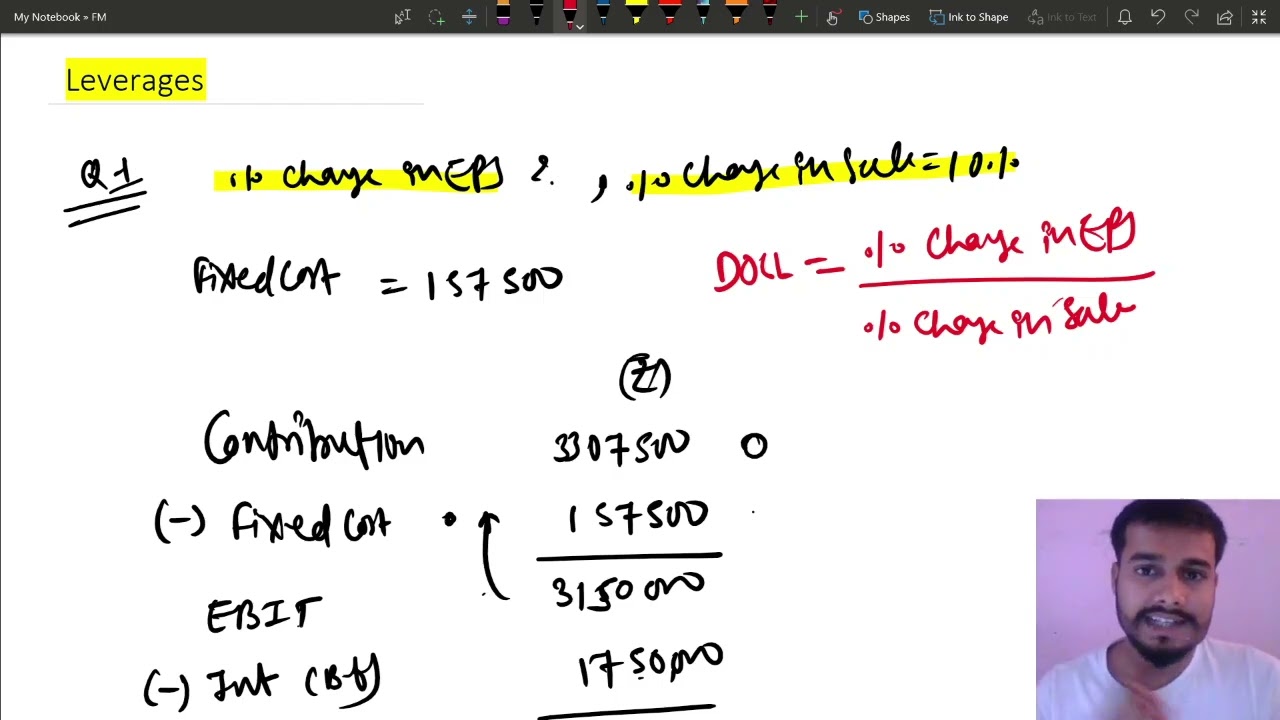 My Notebook » FM
Shapes Ink to Shape Ink to Text
Leverages
Q1 % change in EPS ?, % change in Sale = 10%
Fixed Cost = 157500
DOCL = % change in EPS
% change in Sale
(₹)
Contribution 3307500 0
(-) Fixed Cost 157500
EBIT 3150000
(-) Int (Bf) 1750,000